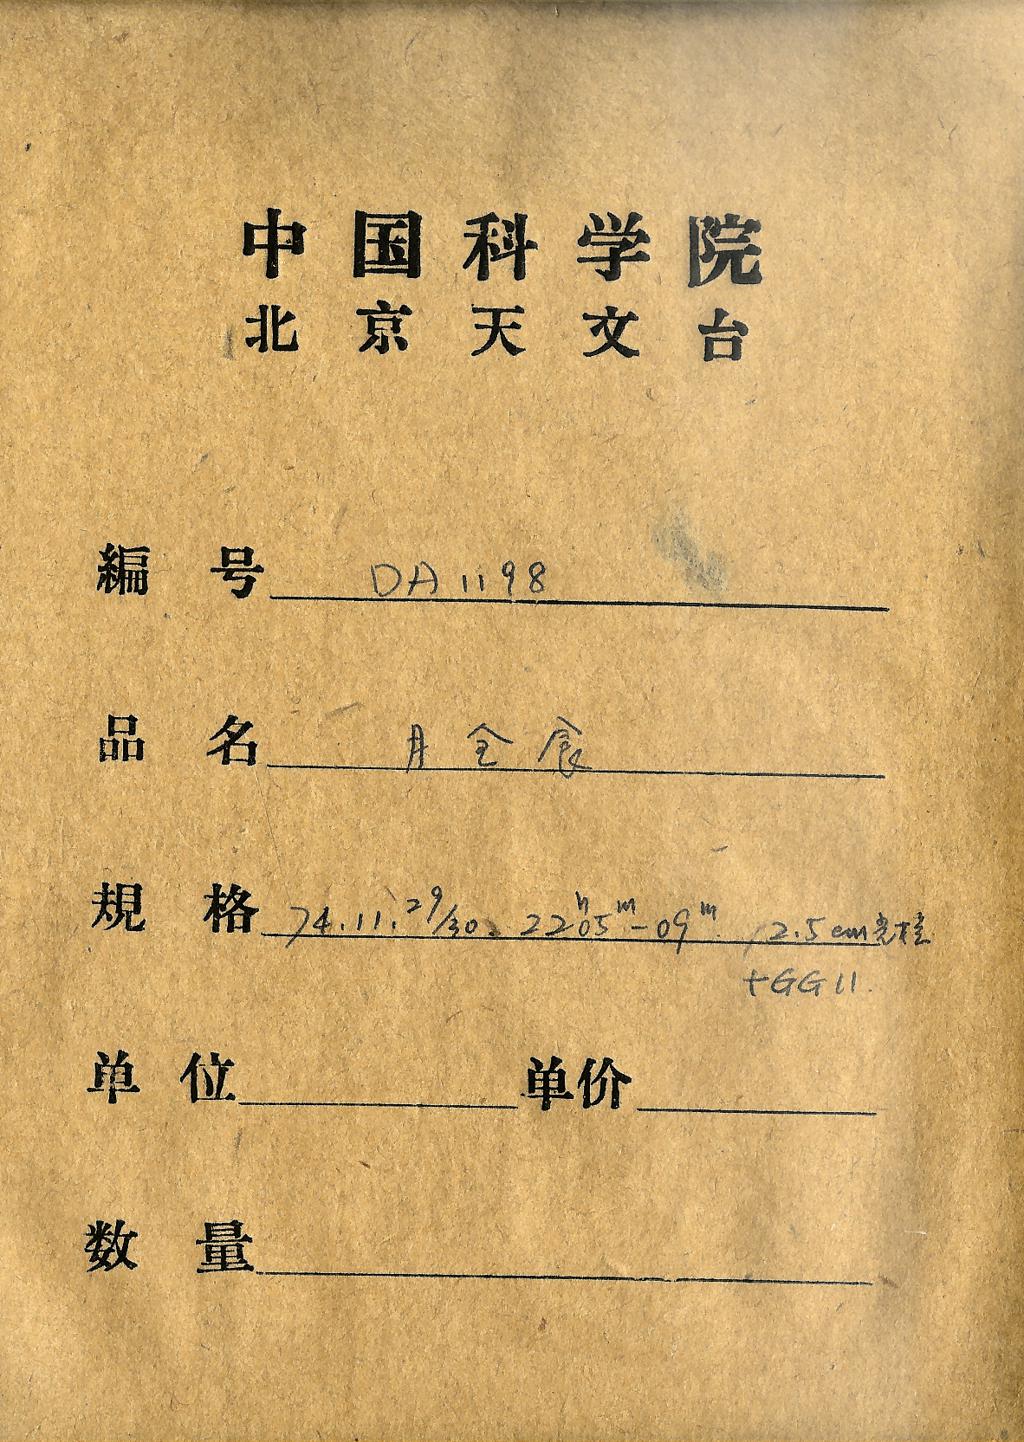 中国科学院
北京天文台
編号 DA1198
品名 月全食
規格 74.11.29/30. 22ʰ05ᵐ-09ᵐ. 12.5cm光栏
+GG11.
单位 单价
数量